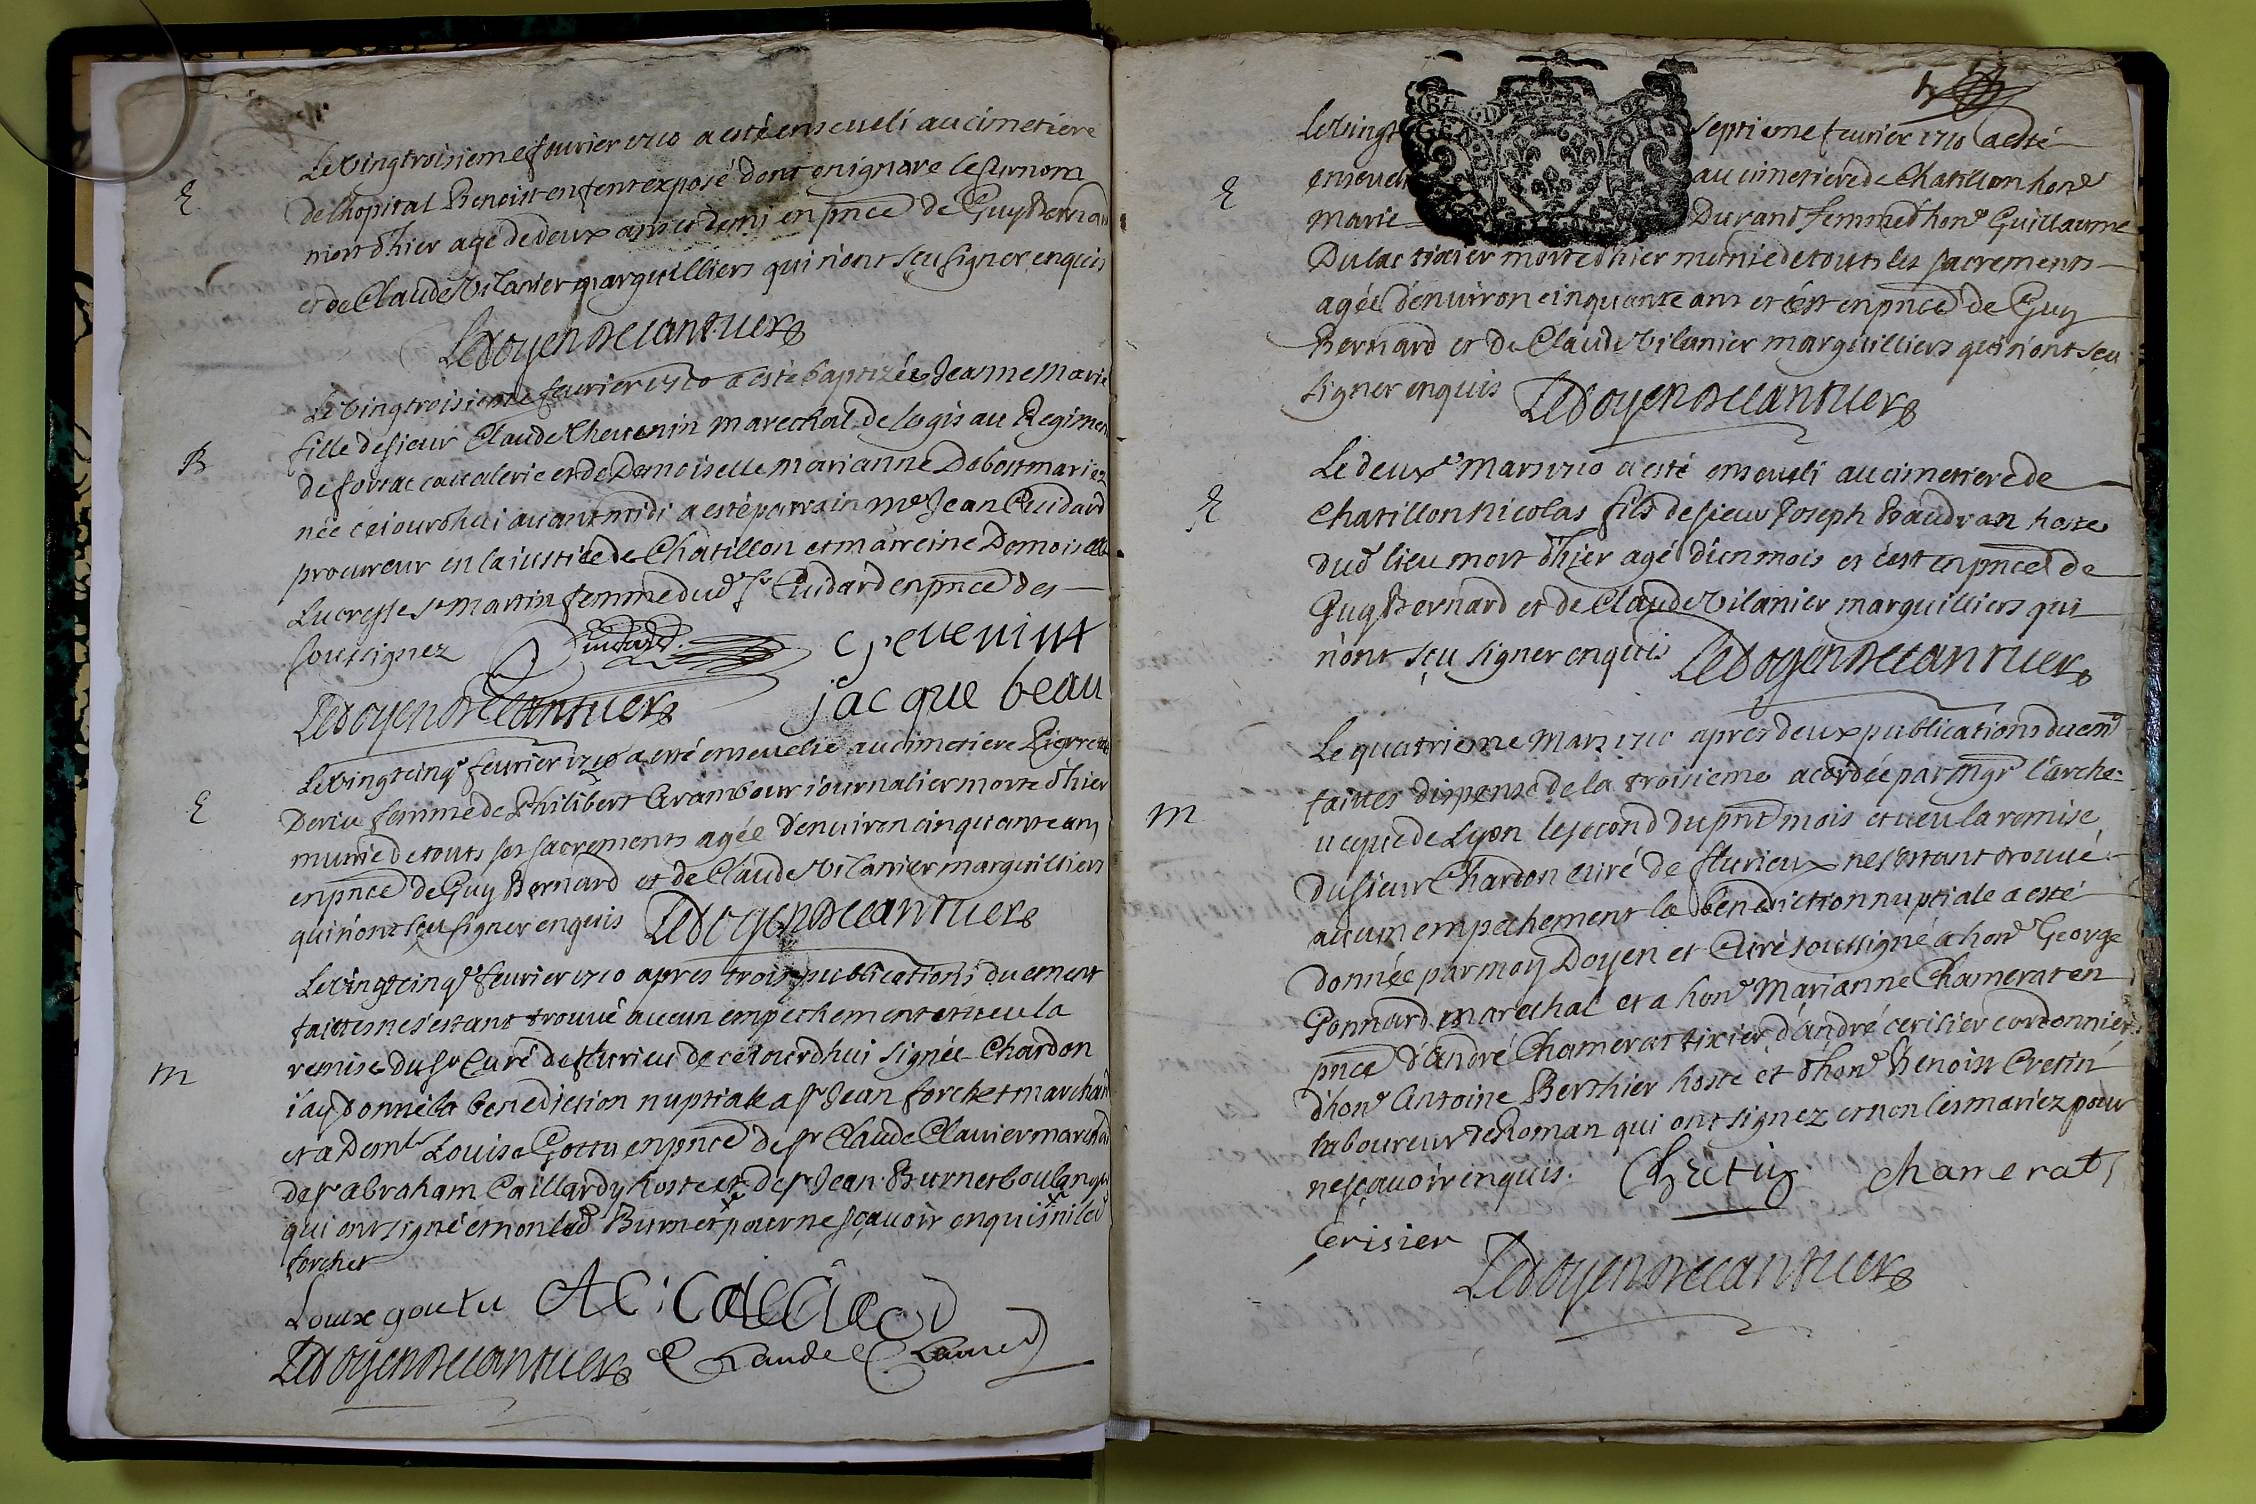 Le vingtroisieme fevrier 1710 a esté enseveli au cimetiere
E
de lhopital Benoist enfent exposé dont on ignore le surnom
mort d'hier agé de deux ans et demi en pnce de Guy Bernard
et de Claude Vilanier marguilliers qui n'ont sçu signer enquis
Le doyen Decantuers
Le vingtroisieme fevrier 1710 a esté baptizée Jeanne Marie
fille de sieur Claude Chevenin marechal de logis au Regiment
B
de forsac cavalerie et de Demoiselle marianne Dobost mariez
née cejourdhui avant midi a esté parrain Me Jean Cuidard
procureur en la justice de Chatillon et marreine Demoiselle
Lucresse St Martin femme dud sr Cuidard en pnce des
soussignez Cuidard chevenint
Le doyen Decantuers jacque beau
Le vingtcinqe fevrier 1710 a esté ensevelie au cimetiere Pierrette
E
Deriu femme de Philibert Arambour journalier morte d'hier
munie de touts ses sacrements agée d'environ cinquante ans
en pnce de Guy Bernard et de Claude Vilanier marguilliers
qui n'ont sçu signer enquis Le doyen Decantuers
Le vingtcinqe fevrier 1710 apres trois publications duement
faittes ne s'estant trouvé aucun empechement et veu la
remise du Sr Curé de fleurieu de cejourdhui signée Chardon
m
j'ay donné la benediction nuptiale a sr Jean forchet marchand
et a Demle Louise Gottu en pnce de sr Claude Clavier marchand
de sr abraham Caillardy hoste et de sr Jean Burnet boulanger
qui ont signé et non led Burnet pour ne sçavoir enquis ni led
forchet
Louix goutu A C : Cailliard
Le doyen Decantuers Claude Clavier
Le vingt septieme fevrier 1710 a esté
E
enseveli au cimetiere de Chatillon hone
Marie Durand femme d'hone Guillaume
Dulac tixier morte d'hier munie de touts les sacrements
agée d'environ cinquante ans et c'est en pnce de Guy
Bernard et de Claude Vilanier marguilliers qui n'ont sçu
signer enquis Le doyen Decantuers
Le deuxe Mars 1710 a esté enseveli au cimetiere de
E
Chatillon Nicolas fils de sieur Joseph Baudran hoste
dud lieu mort d'hier agé d'un mois et c'est en pnce de
Guy Bernard et de Claude Vilanier marguilliers qui
n'ont sçu signer enquis Le doyen Decantuers
Le quatrieme Mars 1710 apres deux publications duemt
faittes dispense de la troisieme acordée par Mgr l'arche-
m
veque de Lyon le second du pnt mois et veu la remise
du sieur Chardon curé de flurieux ne s'estant trouvé
aucun empechement la benediction nuptiale a esté
donnée par moy Doyen et Curé soussigné a hone George
Ponnard marechal et a hone Marianne Chamerat en
pnce d'André Chamerat tixier d'andré cerisier cordonnier
d'hone Antoine Berthier hoste et d'hone Benoist Cretin
laboureur de Roman qui ont signez et non les mariez pour
ne sçavoir enquis. Chretin chamerat
Cerisier
Le doyen Decantuers